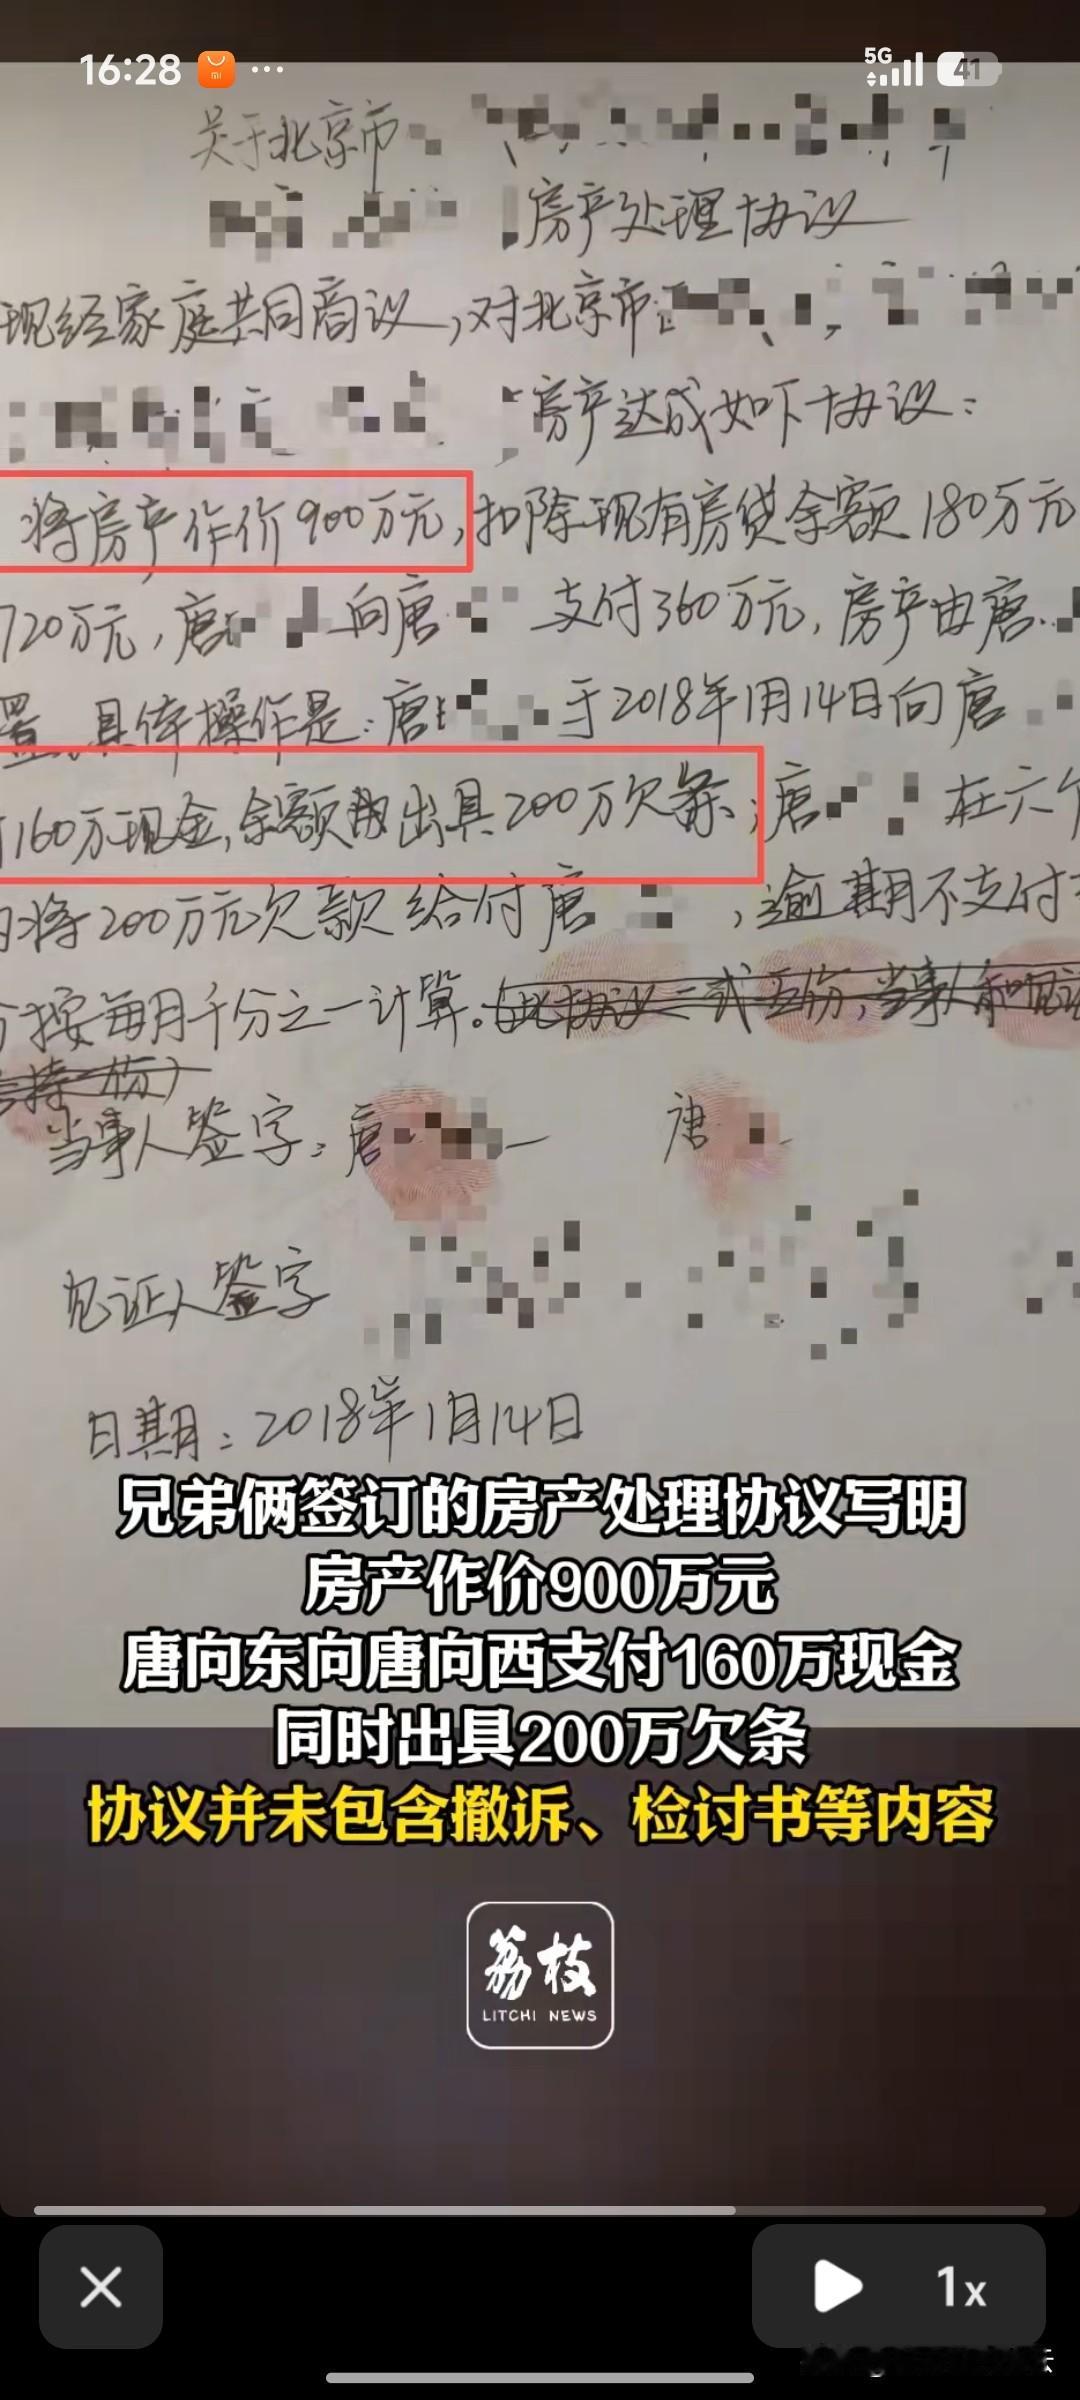 16:28
5G
41
关于北京市
房产处理协议
现经家庭共同商议，对北京市
房产达成如下协议：
将房产作价900万元，扣除现有房贷余额180万元
720万元，唐 向唐 支付360万元，房产由唐
置。具体操作是：唐 于2018年1月14日向唐
160万现金，余额 出具200万欠条；唐 在六个
将200万元欠款给付唐 ，逾期不支付
按每月千分之一计算。（此协议一式五份，当事人和见证
持一份）
当事人签字：唐 唐
见证人签字
日期：2018年1月14日
兄弟俩签订的房产处理协议写明
房产作价900万元
唐向东向唐向西支付160万现金
同时出具200万欠条
协议并未包含撤诉、检讨书等内容
荔枝
LITCHI NEWS
1x